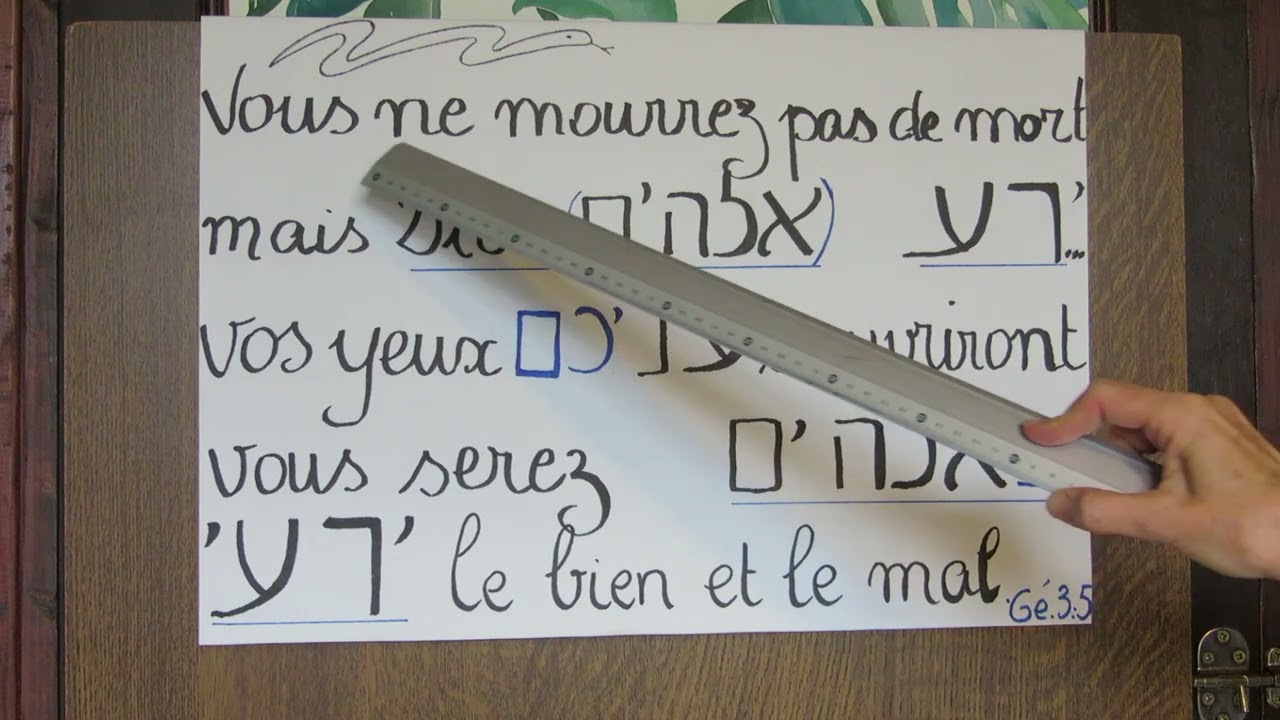 Vous ne mourrez pas de mort
mais (אלהים) ידע...
vos yeux
vous serez אלהים
ידעי le bien et le mal. Gé.3:5